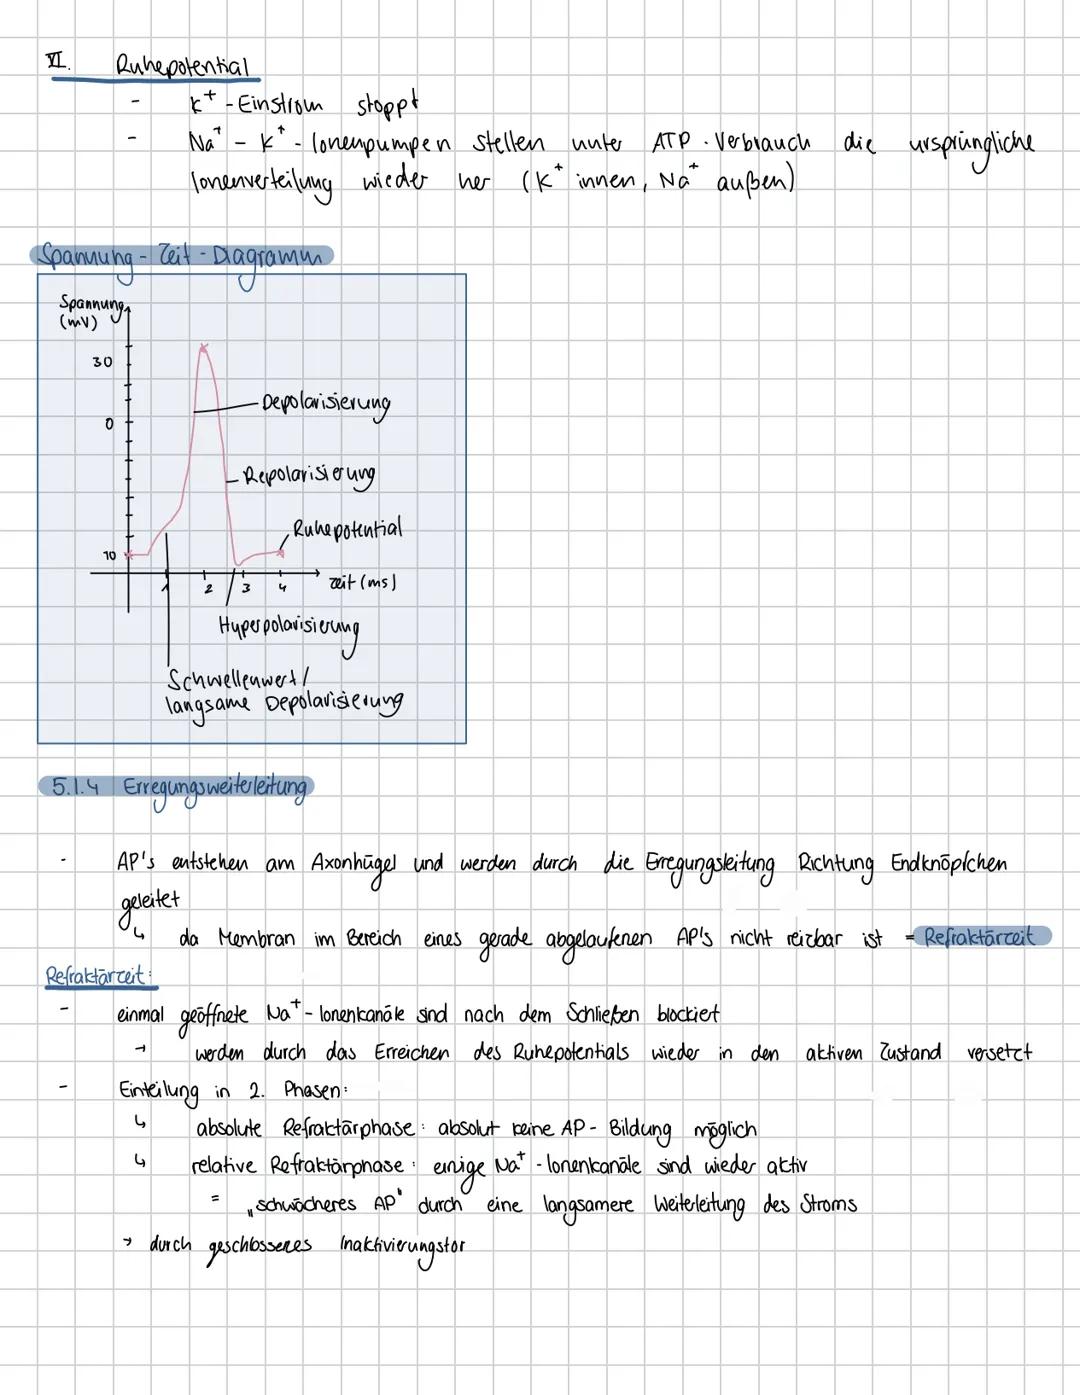 VI. Ruhepotential
- K⁺-Einstrom stoppt
- Na⁺ - K⁺ - Ionenpumpen stellen unter ATP-Verbrauch die ursprüngliche
Ionenverteilung wieder her (K⁺ innen, Na⁺ außen)
Spannung - Zeit - Diagramm
Spannung
(mV)
30
Depolarisierung
0
Repolarisierung
Ruhepotential
10
1 2 3 4 Zeit (ms)
Hyperpolarisierung
Schwellenwert/
langsame Depolarisierung
5.1.4 Erregungsweiterleitung
- AP's entstehen am Axonhügel und werden durch die Erregungsleitung Richtung Endknöpfchen
geleitet
↳ da Membran im Bereich eines gerade abgelaufenen AP's nicht reizbar ist = Refraktärzeit
Refraktärzeit:
- einmal geöffnete Na⁺-Ionenkanäle sind nach dem Schließen blockiert
→ werden durch das Erreichen des Ruhepotentials wieder in den aktiven Zustand versetzt
- Einteilung in 2. Phasen:
↳ absolute Refraktärphase: absolut keine AP-Bildung möglich
↳ relative Refraktärphase: einige Na⁺-Ionenkanäle sind wieder aktiv
= „schwächeres AP" durch eine langsamere Weiterleitung des Stroms
→ durch geschlossenes Inaktivierungstor